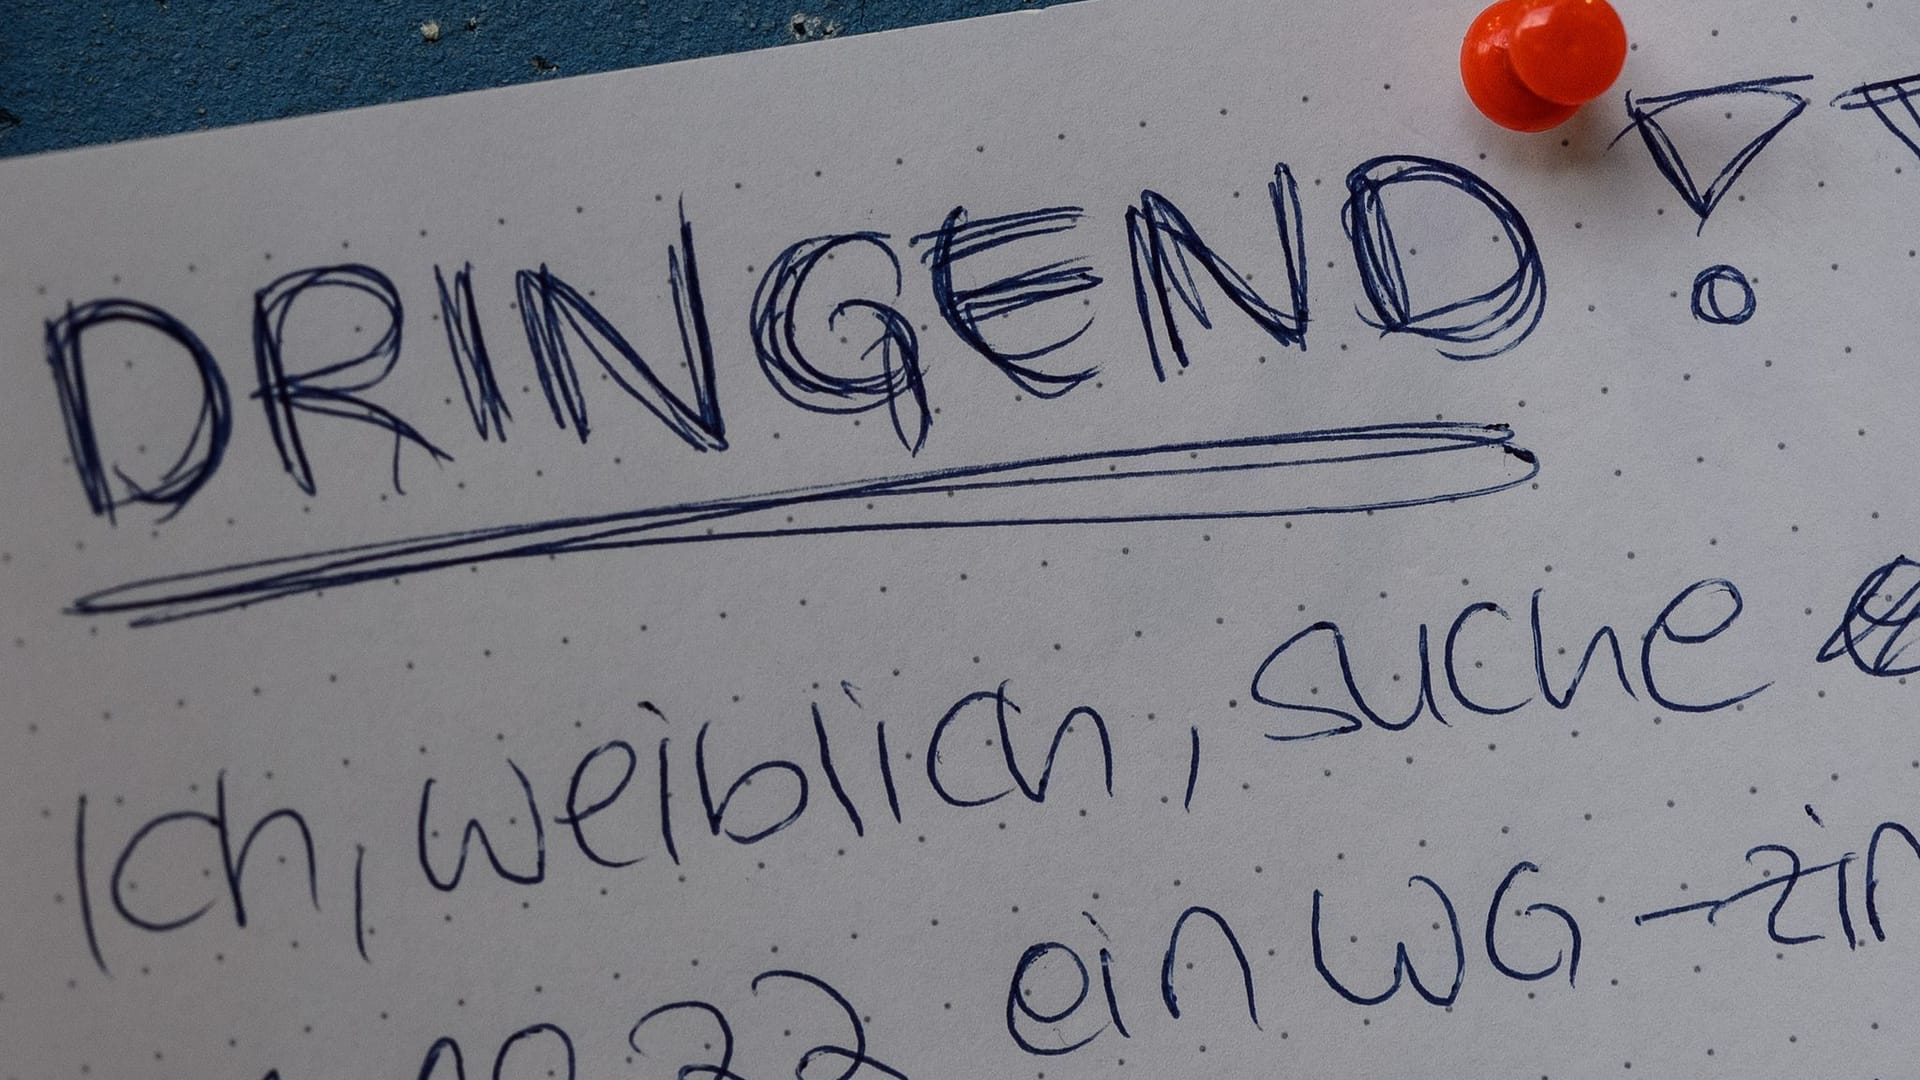 DRINGEND!
Ich, weiblich, suche
ein WG-